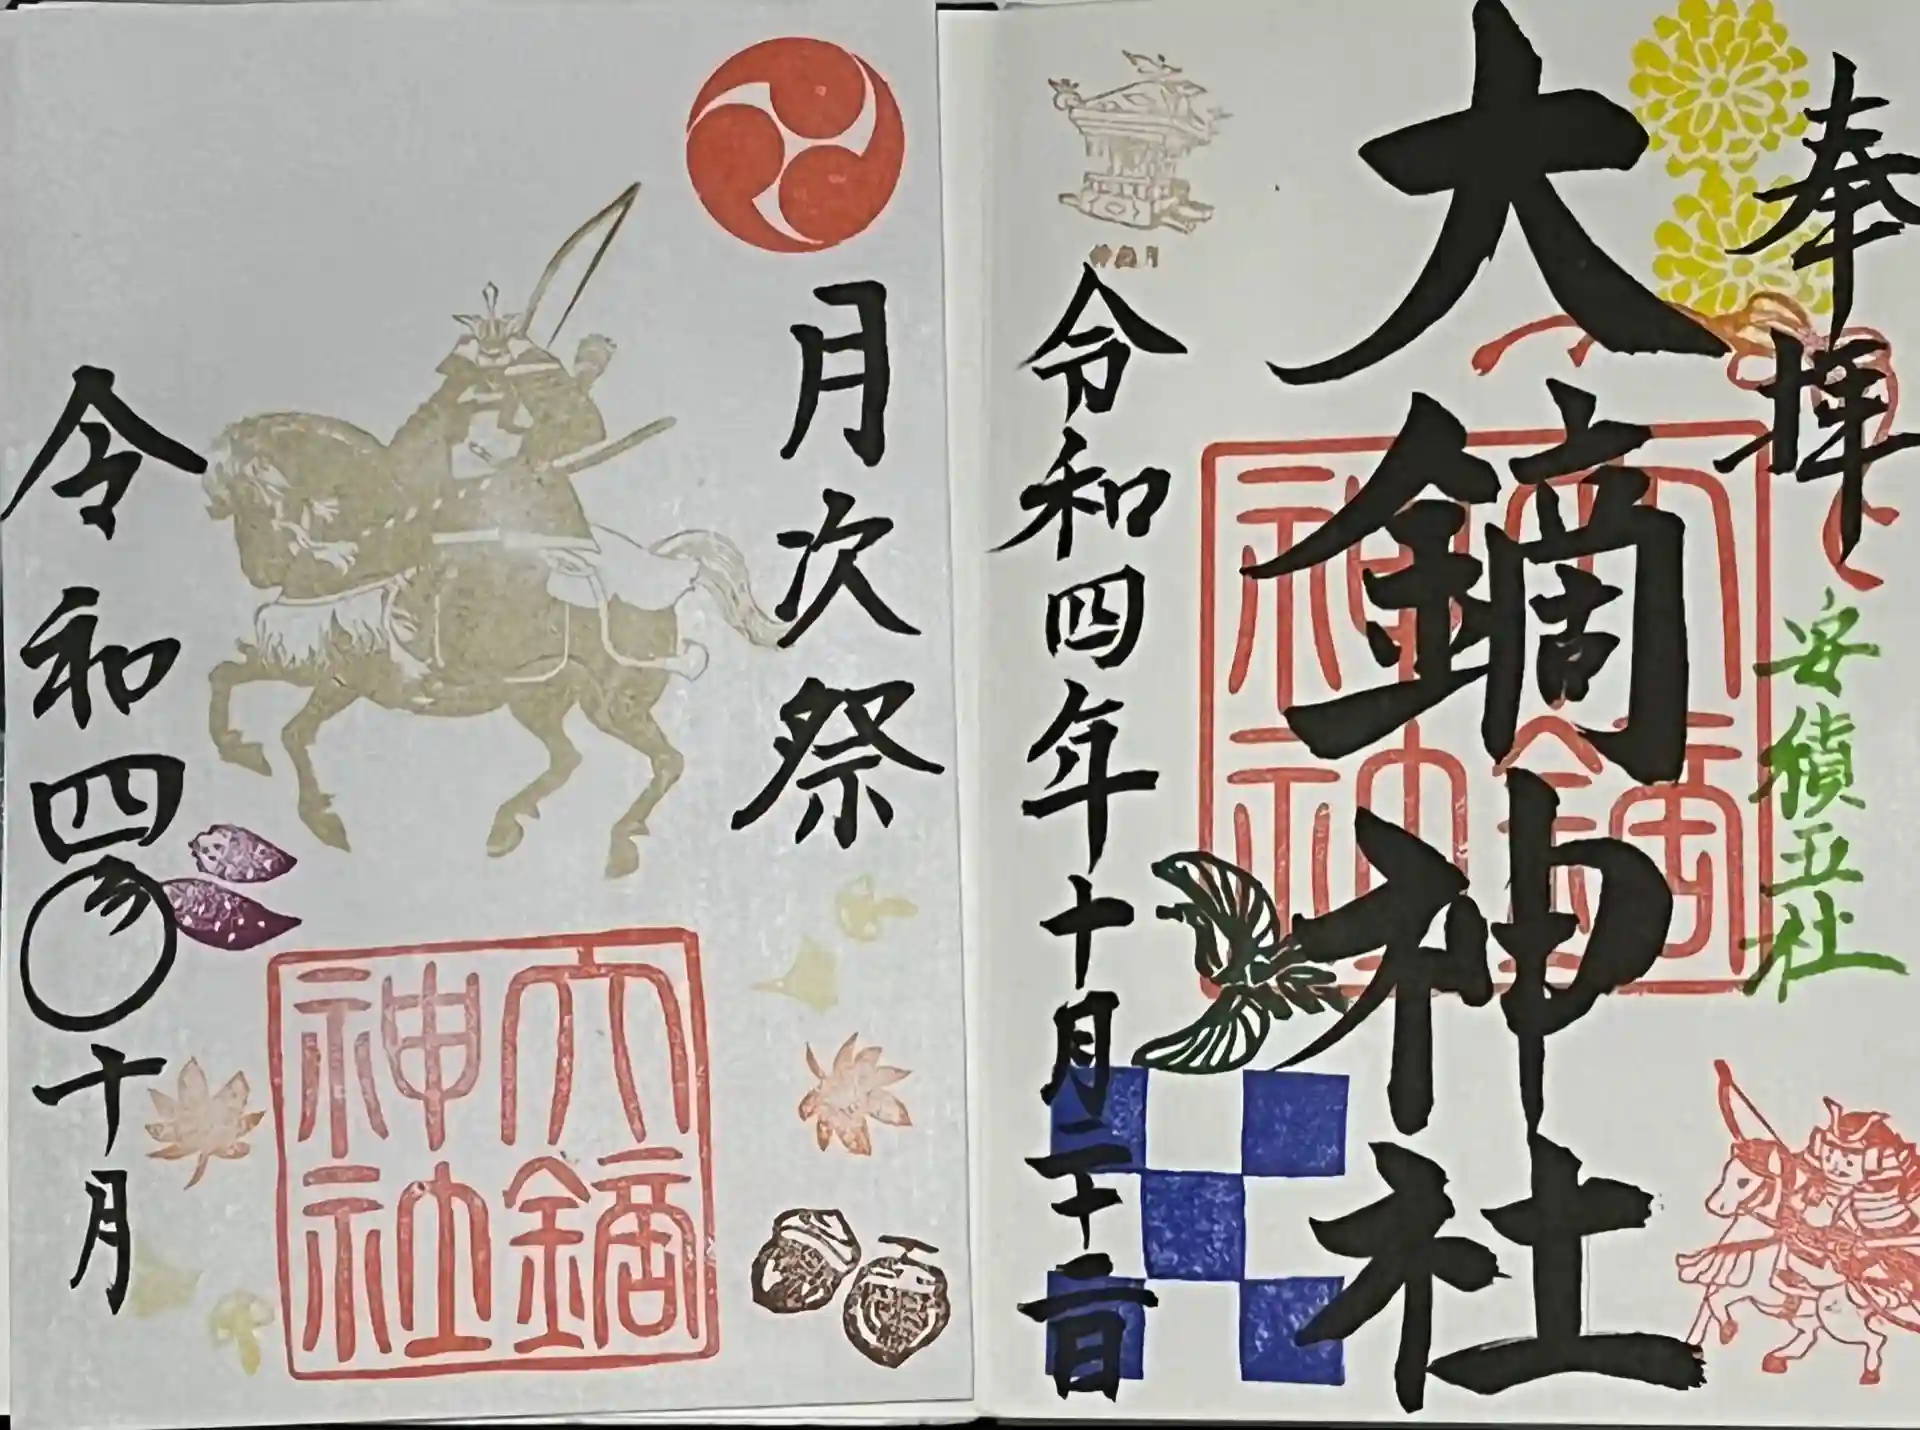 奉拝
安積五社
大鏑神社
大鏑神社
令和四年十月二十二日
神無月
月次祭
大鏑神社
令和四
十月